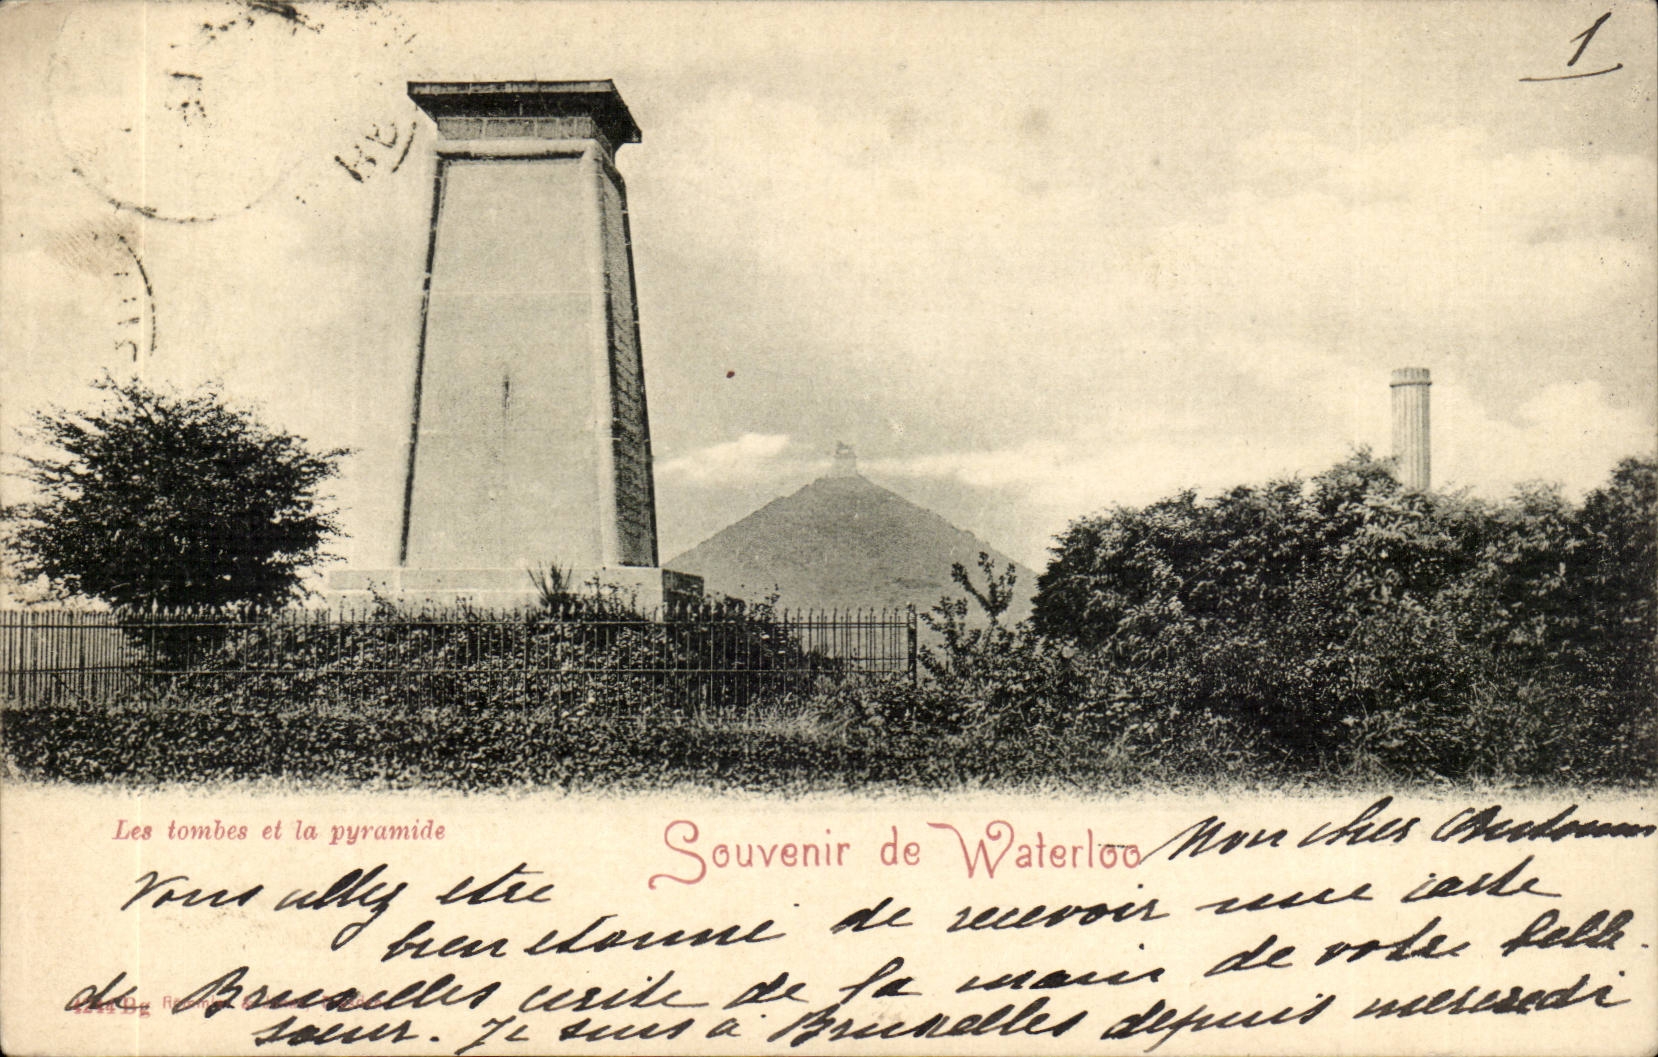 1
Les tombes et la pyramide
Souvenir de Waterloo
Mon cher
Vous allez etre
bien etonné de recevoir une carte
de Bruxelles ecrite de la main de votre belle-
soeur. Je suis à Bruxelles depuis mercredi